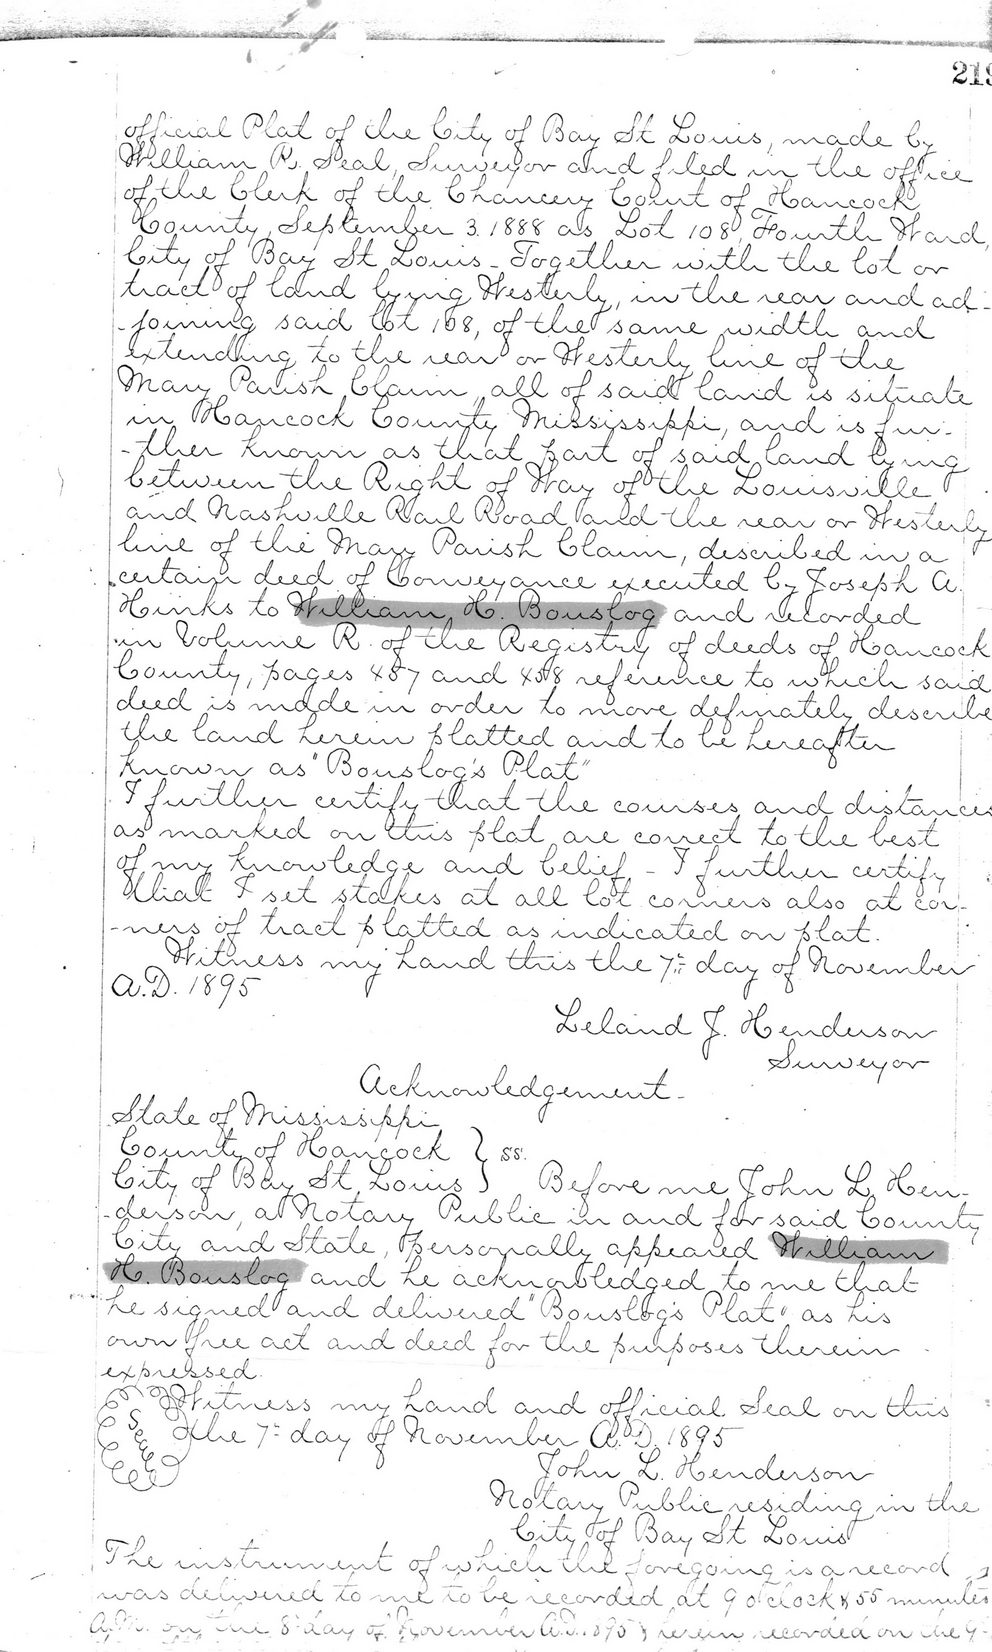 219
official Plat of the City of Bay St Louis, made by
William R. Seal, Surveyor and filed in the office
of the Clerk of the Chancery Court of Hancock
County, September 3. 1888 as Lot 108, Fourth Ward,
City of Bay St Louis - Together with the lot or
tract of land lying Westerly, in the rear and ad-
-joining said lot 108, of the same width and
extending to the rear or Westerly line of the
Mary Parish Claim, all of said land is situate
in Hancock County Mississippi, and is fur-
-ther known as that part of said land lying
between the Right of Way of the Louisville
and Nashville Rail Road and the rear or Westerly
line of the Mary Parish Claim, described in a
certain deed of Conveyance executed by Joseph A.
Hinks to William H. Bouslog and recorded
in Volume R. of the Registry of deeds of Hancock
County, pages 457 and 458 reference to which said
deed is made in order to more definately describe
the land herein platted and to be hereafter
known as "Bouslog's Plat"
I further certify that the courses and distances
as marked on this plat are correct to the best
of my knowledge and belief - I further certify
that I set stakes at all lot corners also at cor-
-ners of tract platted as indicated on plat.
Witness my hand this the 7th day of November
A.D. 1895
Leland J. Henderson
Surveyor
Acknowledgement.
State of Mississippi
County of Hancock } ss.
City of Bay St Louis Before me John L. Hen-
-derson, a Notary Public in and for said County
City and State, personally appeared William
H. Bouslog and he acknowledged to me that
he signed and delivered "Bouslog's Plat" as his
own free act and deed for the purposes therein
expressed.
Seal Witness my hand and official Seal on this
the 7th day of November A.D. 1895
John L. Henderson
Notary Public residing in the
City of Bay St Louis
The instrument of which the foregoing is a record
was delivered to me to be recorded at 9 o'clock & 55 minutes
A.M. on the 8th day of November A.D. 1895 & herein recorded on the 9